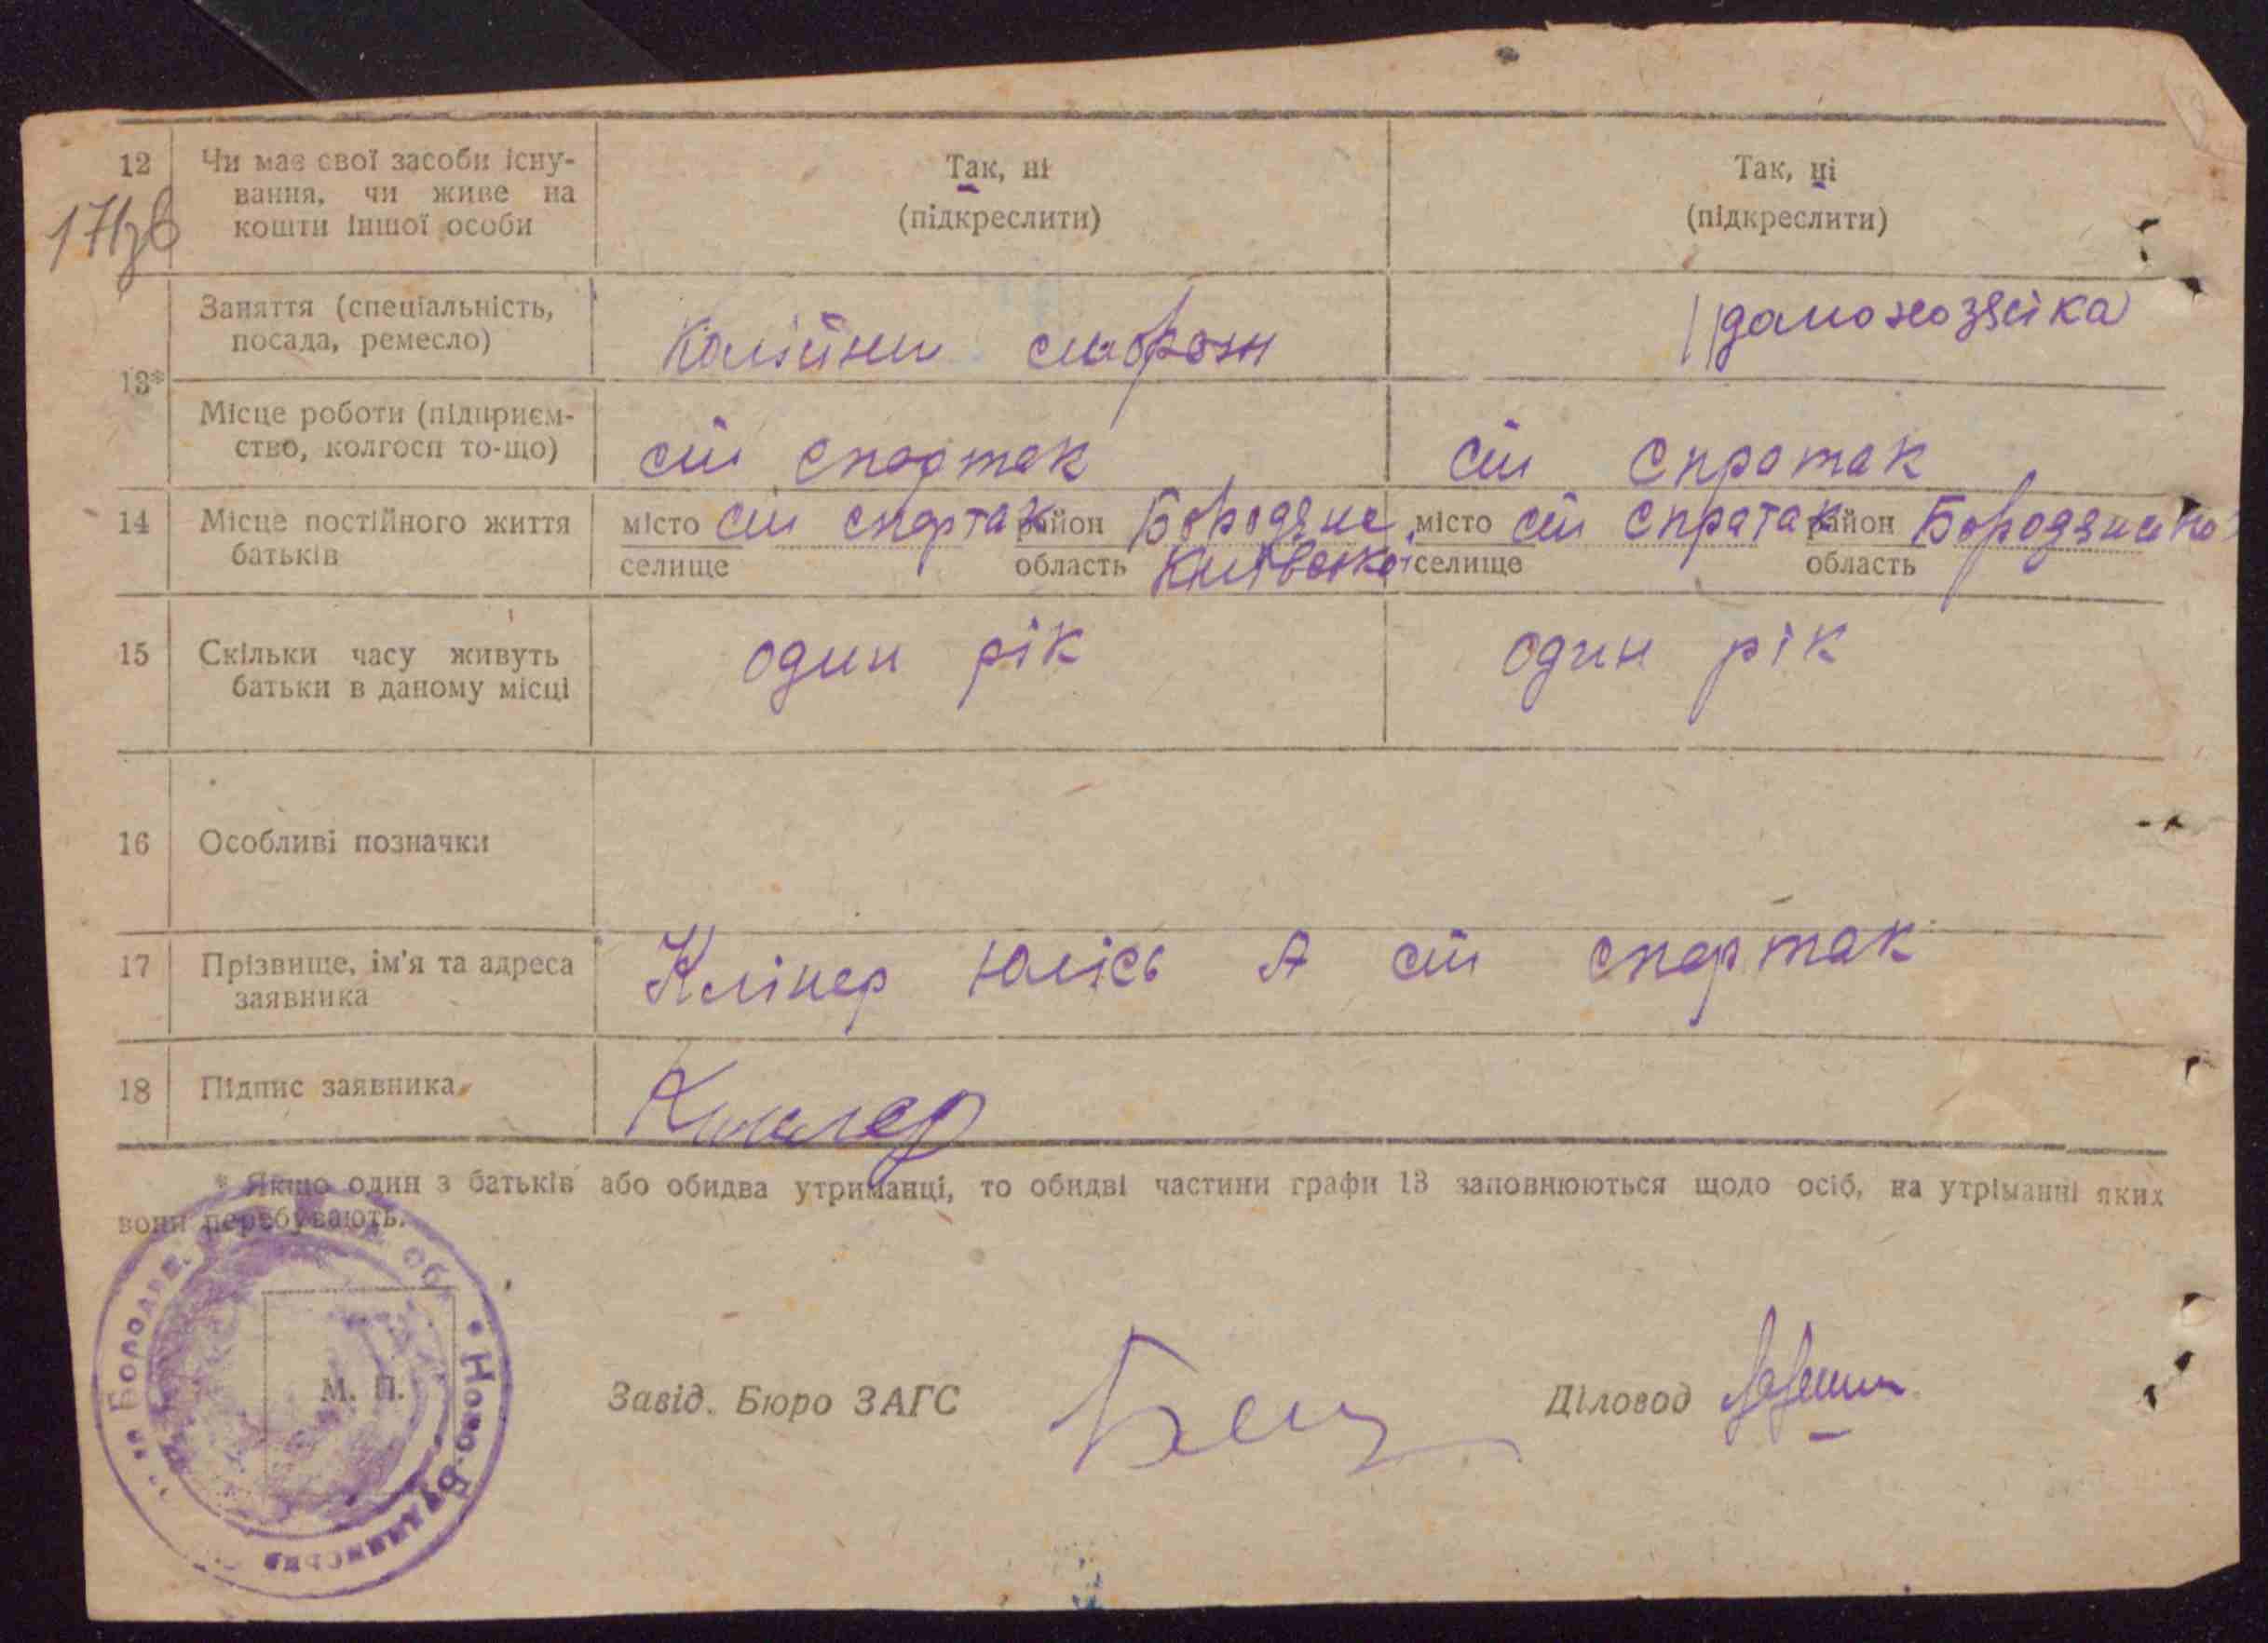 12 Чи має свої засоби існу-
вання, чи живе на
кошти іншої особи
Так, ні
(підкреслити)
Так, ні
(підкреслити)
13*
Заняття (спеціальність,
посада, ремесло)
сторож
домохозяйка
Місце роботи (підприєм-
ство, колгосп то-що)
спартак
спротак
14 Місце постійного життя
батьків
місто спартак район Бородянс
селище область Київської
місто спратак район Бородянсько
селище область
15 Скільки часу живуть
батьки в даному місці
один рік
один рік
16 Особливі позначки
17 Прізвище, ім'я та адреса
заявника
Клінер Юлієь А спартак
18 Підпис заявника
* Якщо один з батьків або обидва утриманці, то обидві частини графи 13 заповнюються щодо осіб, на утріманні яких
вони перебувають.
М. П.
Завід. Бюро ЗАГС
Діловод